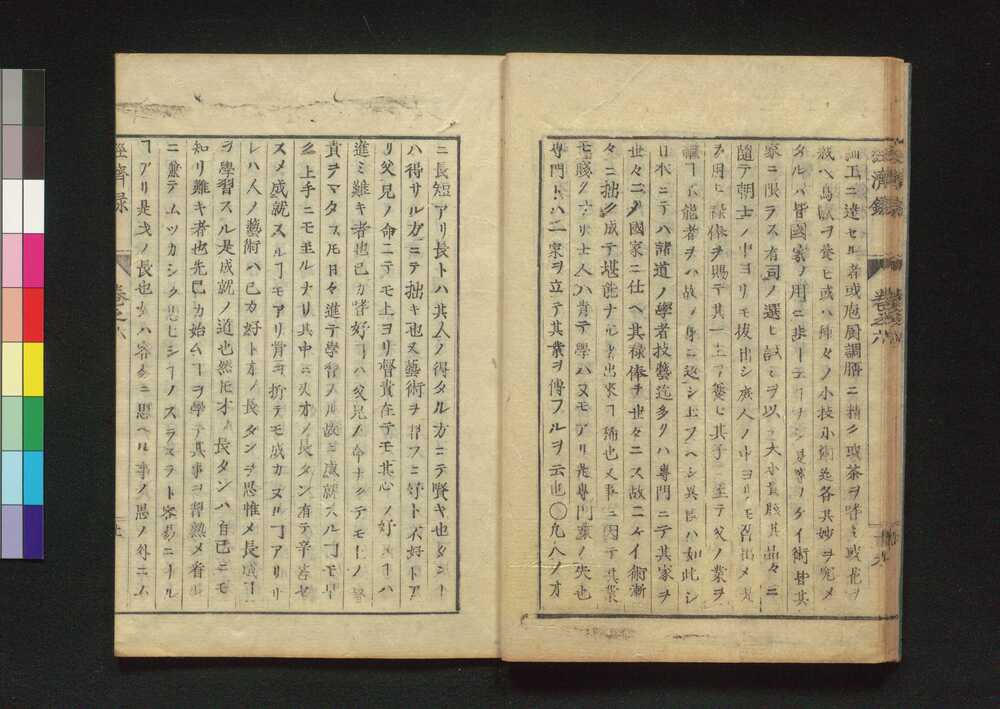 細工ニ達セル者或庖厨調膳ニ精ク或茶ヲ嗜ミ或花ヲ
裁ヘ鳥獣ヲ養ヒ或ハ種々ノ小技小術迄各其妙ヲ究メ
タルハ皆國家ノ用ニ非
家ニ限ラス有司ノ選ヒ試ミヲ以テ大小貴賤其品々ニ
隨テ朝士ノ中ヨリモ抜出シ庶人ノ中ヨリモ召出メ
ヲ用ヒ禄俸ヲ賜テ其一生ヲ養ヒ其子ニ至テ父ノ業ヲ
不能者ヲハ故ノ身ニ返シ玉フヘシ異國ハ如此シ
日本ニテハ諸道ノ學者技藝迄多クハ專門ニテ其家ヲ
世々ニメ國家ニ仕ヘ其禄俸ヲ世々ニス故ニケイ術漸
々ニ拙ク成テ堪能ナル者出來ヿ稀也又事ニ因テ其業
モ賤クナリ士人ハ肯テ學ハヌモアリ是專門業ノ失也
專門トハ一家ヲ立テ其業ヲ傳フルヲ云也〇凡人ノオ
經濟録
卷之六
ニ長短アリ長トハ其人ノ得タル方ニテ賢キ也タンート
ハ得サル方ニテ拙キ也又藝術ヲ習フニ好ト不好トア
リ父兄ノ命ニテモ上ヨリ督責在テモ其心ノ好ヌヿハ
進ミ難キ者也己カ嗜好ヿハ父兄ノ命ナクテモ上ノ督
責ヲマタス𪜈日々進テ學習スル故ニ成就スルヿモ早
ク上手ニモ至ルナリ其中ニ又オノ長タン有テ辛苦セ
スメ成就スルヿモアリ骨ヲ折テモ成カヌルヿアリ
レハ人ノ藝術ハ己カ好トオノ長タンヲ思惟メ長成ヿ
ヲ學習スル是成就ノ道也然𪜈オノ長タンハ自己ニモ
知リ難キ者也先己カ始ムヿヲ學テ其事ヲ習熟メ看
ニ兼テムツカシク思ヒシヿノスラスラト容易ニナル
ヿアリ是オノ長也又ハ容易ニ思ヘル事ノ思ノ外ニム
經濟録
卷之六